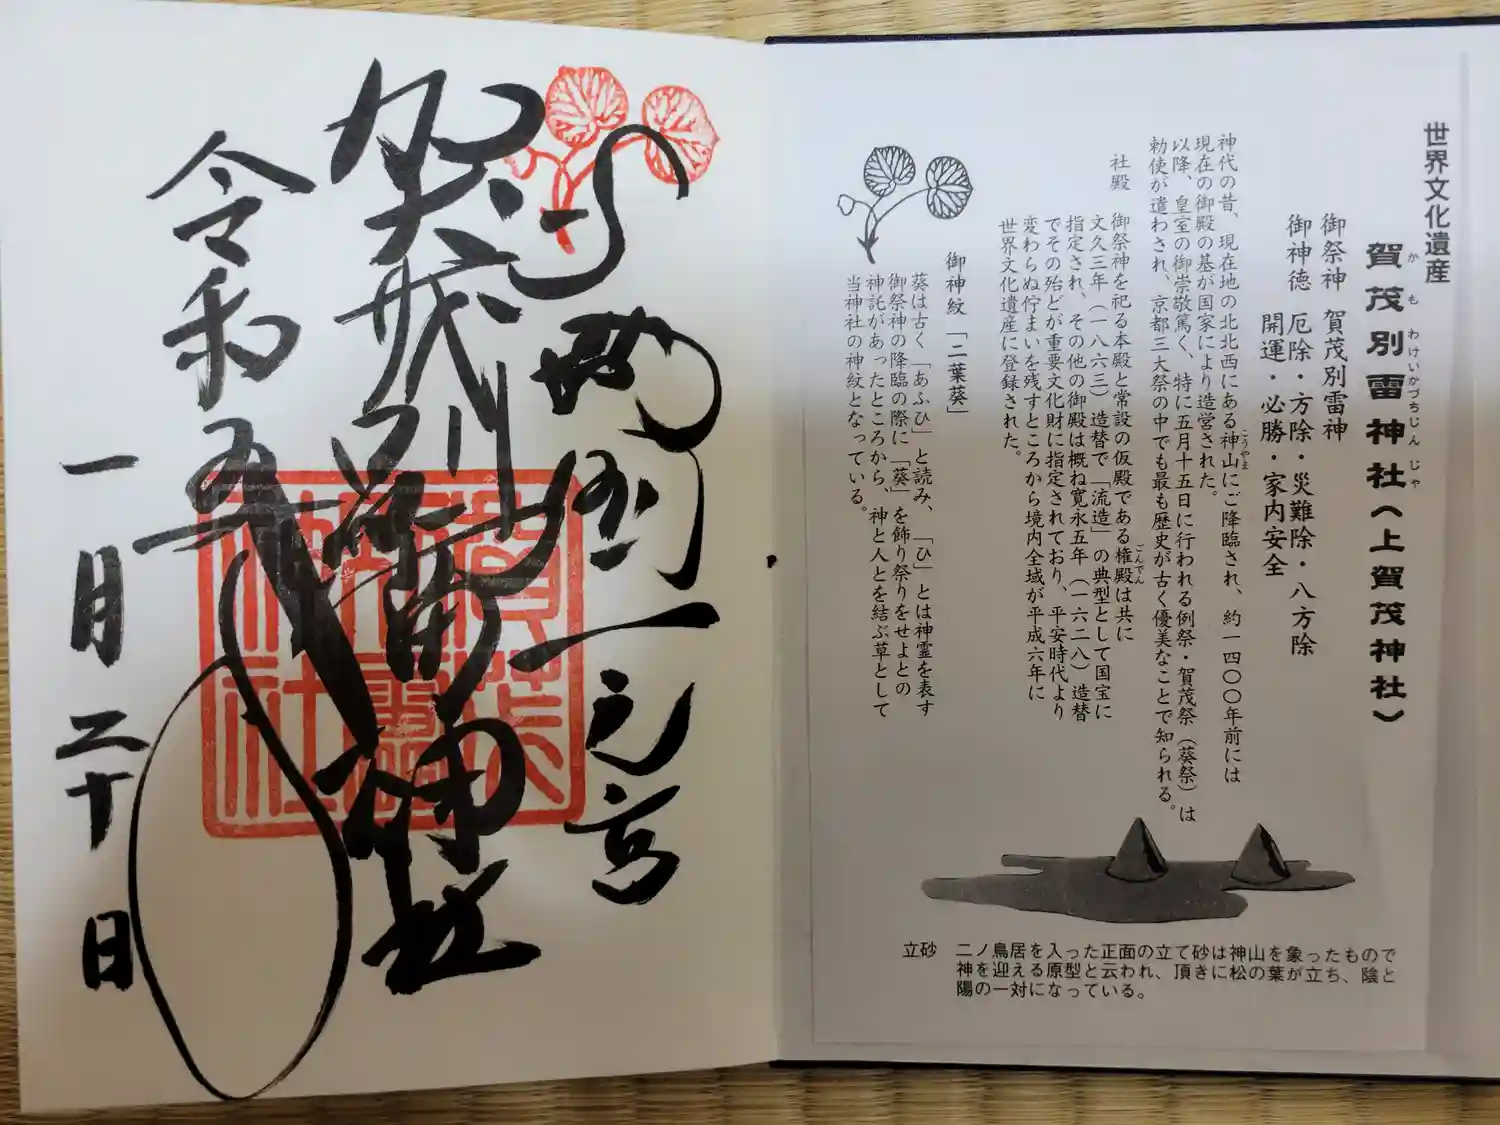 世界文化遺産
賀茂別雷神社(上賀茂神社)
かもわけいかづちじんじゃ
御祭神 賀茂別雷神
御神徳 厄除・方除・災難除・八方除
開運・必勝・家内安全
神代の昔、現在地の北北西にある神山にご降臨され、約一四〇〇年前には
こうやま
現在の御殿の基が国家により造営された。
以降、皇室の御崇敬篤く、特に五月十五日に行われる例祭・賀茂祭(葵祭)は
勅使が遣わされ、京都三大祭の中でも最も歴史が古く優美なことで知られる。
社殿 御祭神を祀る本殿と常設の仮殿である権殿は共に
ごんでん
文久三年(一八六三)造替で「流造」の典型として国宝に
指定され、その他の御殿は概ね寛永五年(一六二八)造替
でその殆どが重要文化財に指定されており、平安時代より
変わらぬ佇まいを残すところから境内全域が平成六年に
世界文化遺産に登録された。
御神紋 「二葉葵」
葵は古く「あふひ」と読み、「ひ」とは神霊を表す
御祭神の降臨の際に「葵」を飾り祭りをせよとの
神託があったところから、神と人とを結ぶ草として
当神社の神紋となっている。
立砂 二ノ鳥居を入った正面の立て砂は神山を象ったもので
神を迎える原型と云われ、頂きに松の葉が立ち、陰と
陽の一対になっている。
山城国一之宮
賀茂別雷神社
令和五年
一月二十日